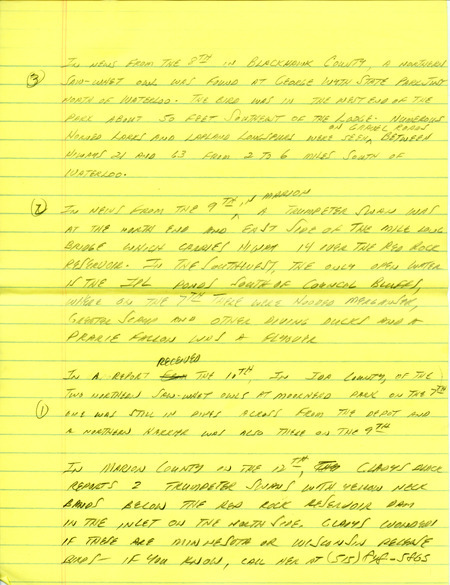 IN NEWS FROM THE 8TH IN BLACKHAWK COUNTY, A NORTHERN
③ SAW-WHET OWL WAS FOUND AT GEORGE WYTH STATE PARK JUST
NORTH OF WATERLOO. THE BIRD WAS IN THE WEST END OF THE
PARK ABOUT 50 FEET SOUTHEAST OF THE LODGE. NUMEROUS
ON GRAVEL ROADS
HORNED LARKS AND LAPLAND LONGSPURS WERE SEEN BETWEEN
HIWAYS 21 AND 63 FROM 2 TO 6 MILES SOUTH OF
WATERLOO.
IN MARION
② IN NEWS FROM THE 9TH, A TRUMPETER SWAN WAS
AT THE NORTH END AND EAST SIDE OF THE MILE LONG
BRIDGE WHICH CARRIES HIWAY 14 OVER THE RED ROCK
RESERVOIR. IN THE SOUTHWEST, THE ONLY OPEN WATER
IS THE IPL PONDS SOUTH OF COUNCIL BLUFFS,
WHERE ON THE 7TH THERE WERE HOODED MERGANSER,
GREATER SCAUP AND OTHER DIVING DUCKS AND A
PRARIE FALCON WAS A FLYOVER
RECEIVED
IN A REPORT THE 10TH, IN IDA COUNTY, OF THE
TWO NORTHERN SAW-WHET OWLS AT MOOREHEAD PARK ON THE 7TH
① ONE WAS STILL IN PINES ACROSS FROM THE DEPOT AND
A NORTHERN HARRIER WAS ALSO THERE ON THE 9TH
IN MARION COUNTY ON THE 12TH, GLADYS BLACK
REPORTS 2 TRUMPETER SWANS WITH YELLOW NECK
BANDS BELOW THE RED ROCK RESERVOIR DAM
IN THE INLET ON THE NORTH SIDE. GLADYS WONDERS
IF THESE ARE MINNESOTA OR WISCONSIN RELEASE
BIRDS - IF YOU KNOW, CALL HER AT (515)